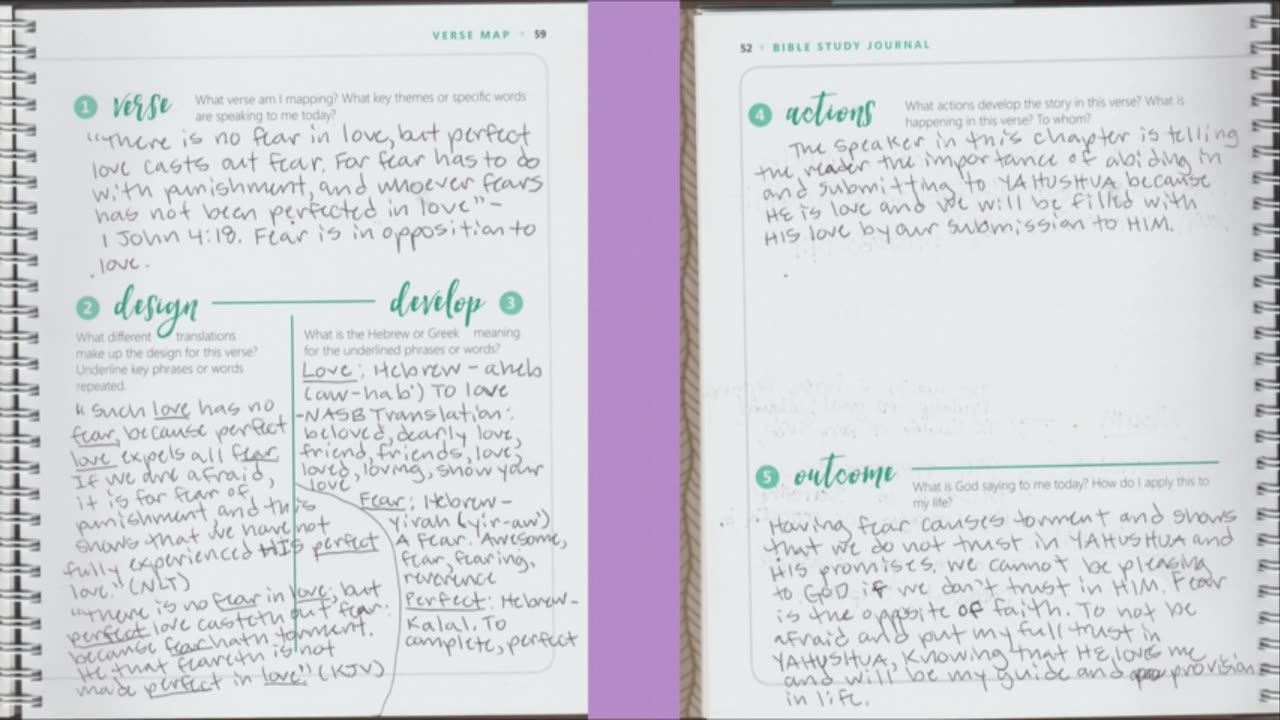 VERSE MAP • 59
1 verse
What verse am I mapping? What key themes or specific words
are speaking to me today?
"There is no fear in love, but perfect
love casts out fear. For fear has to do
with punishment, and whoever fears
has not been perfected in love" -
1 John 4:18. Fear is in opposition to
love.
2 design
What different translations
make up the design for this verse?
Underline key phrases or words
repeated.
"Such love has no
fear, because perfect
love expels all fear
If we are afraid,
it is for fear of
punishment and this
shows that we have not
fully experienced HIS perfect
love." (NLT)
"There is no fear in love, but
perfect love casteth out fear:
because fear hath torment.
He that feareth is not
made perfect in love." (KJV)
develop 3
What is the Hebrew or Greek meaning
for the underlined phrases or words?
Love: Hebrew - aheb
(aw-hab') To love
-NASB Translation:
beloved, dearly love,
friend, friends, love,
loved, loving, show your
love
Fear: Hebrew -
yirah (yir-aw')
A fear. Awesome,
fear, fearing,
reverence
Perfect: Hebrew-
Kalal. To
complete, perfect
52 • BIBLE STUDY JOURNAL
4 actions
What actions develop the story in this verse? What is
happening in this verse? To whom?
The speaker in this chapter is telling
the reader the importance of abiding in
and submitting to YAHUSHUA because
HE is love and we will be filled with
HIS love by our submission to HIM.
5 outcome
What is God saying to me today? How do I apply this to
my life?
Having fear causes torment and shows
that we do not trust in YAHUSHUA and
HIS promises. we cannot be pleasing
to GOD if we don't trust in HIM. Fear
is the opposite of faith. To not be
afraid and put my full trust in
YAHUSHUA, Knowing that HE loves me
and will be my guide and provision
in life.